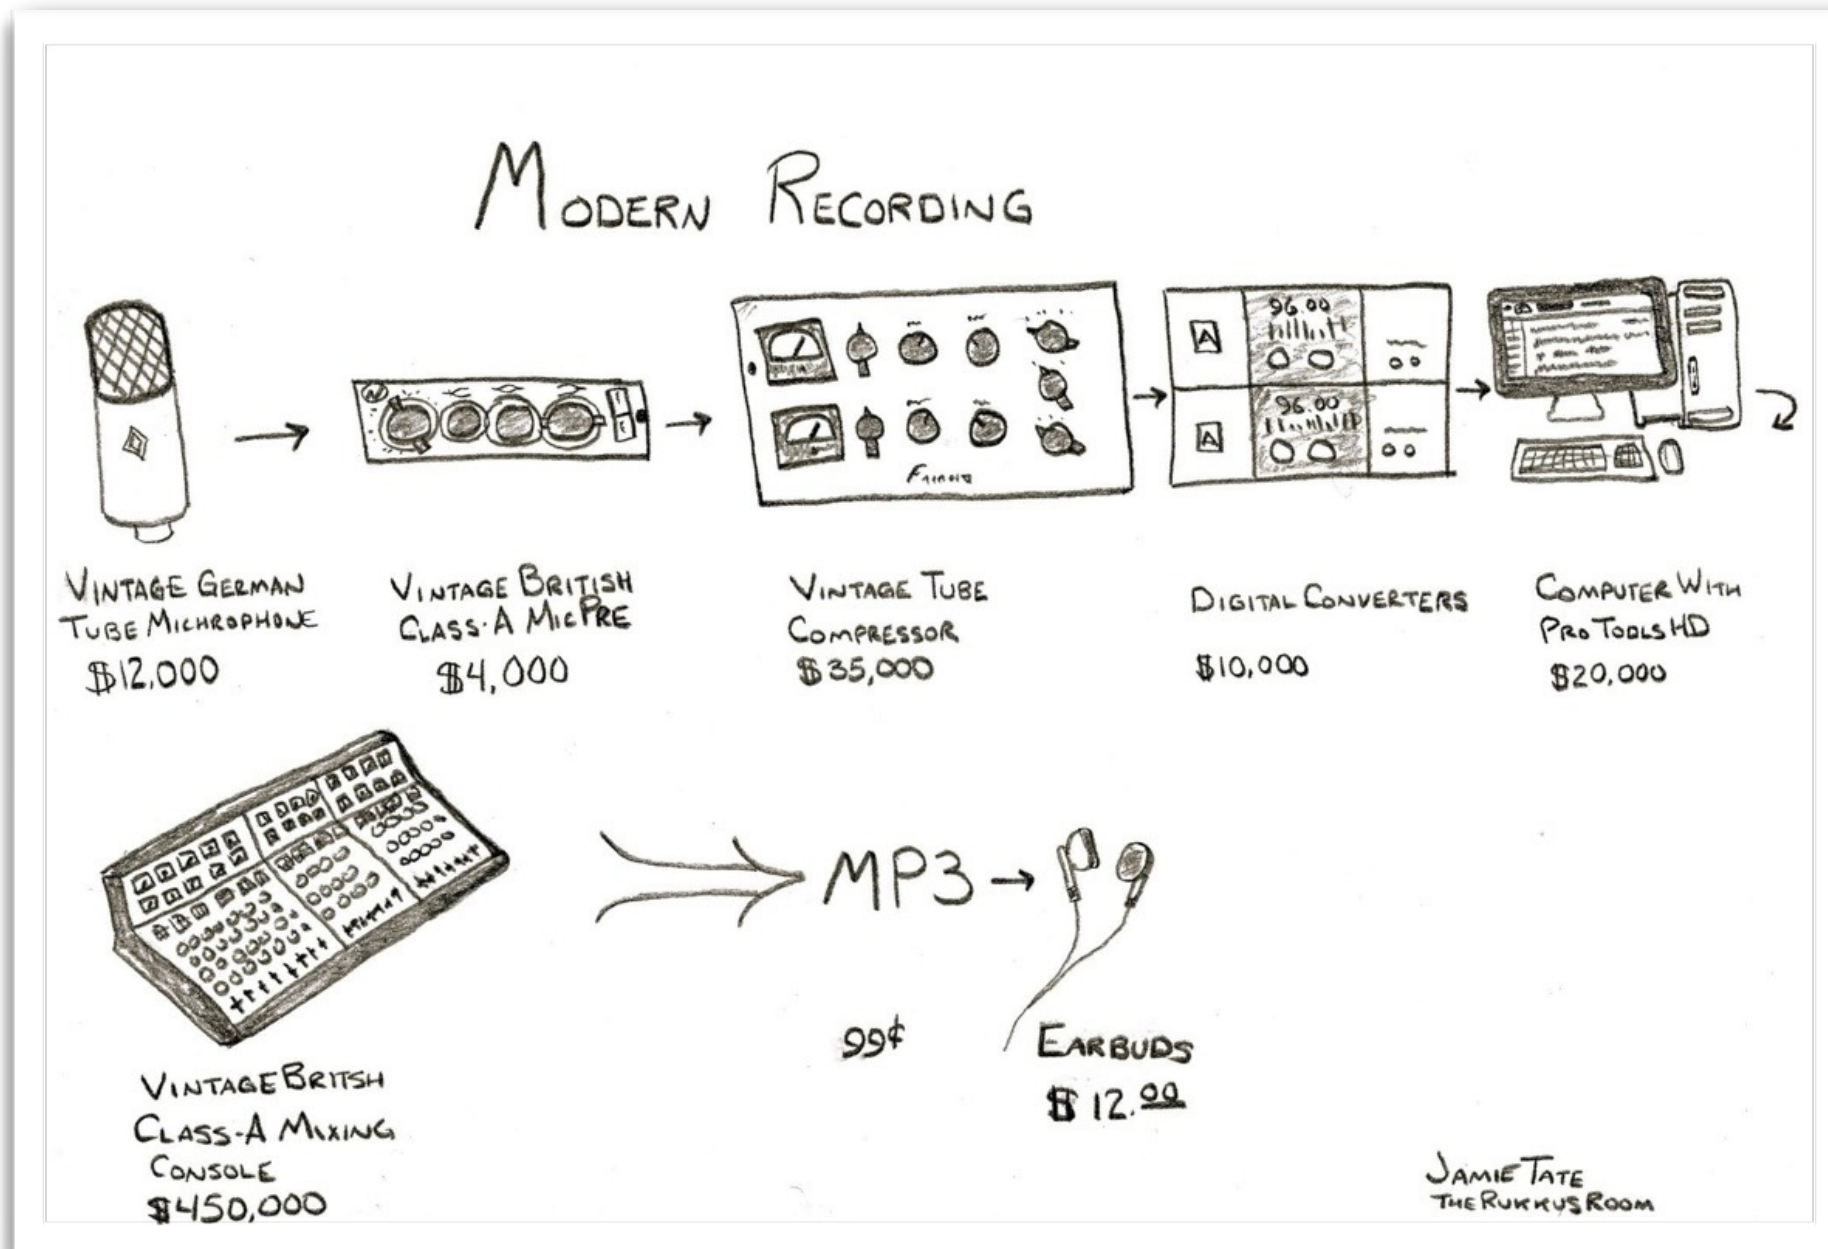 MODERN RECORDING
96.00
96.00
VINTAGE GERMAN
TUBE MICHROPHONE
$12,000
VINTAGE BRITISH
CLASS-A MICPRE
$4,000
VINTAGE TUBE
COMPRESSOR
$35,000
DIGITAL CONVERTERS
$10,000
COMPUTER WITH
PRO TOOLS HD
$20,000
VINTAGE BRITSH
CLASS-A MIXING
CONSOLE
$450,000
MP3
99¢
EARBUDS
$12.00
JAMIE TATE
THE RUKKUS ROOM